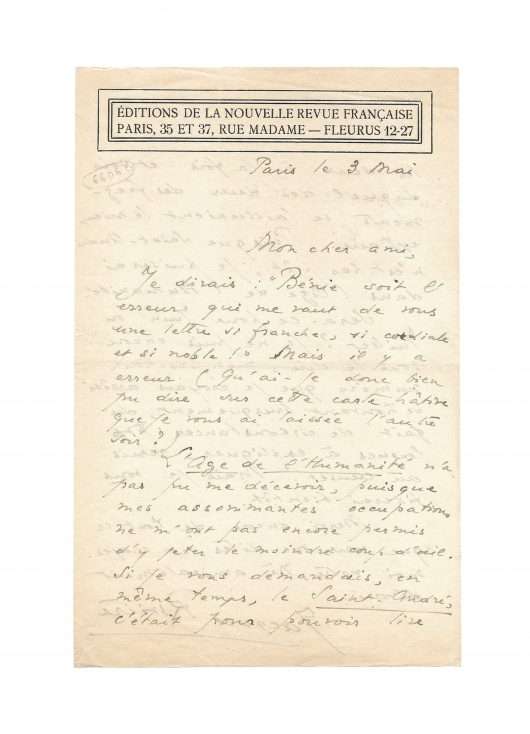 ÉDITIONS DE LA NOUVELLE REVUE FRANÇAISE
PARIS, 35 ET 37, RUE MADAME — FLEURUS 12-27
Paris le 3 Mai
Mon cher ami,
Je dirais : "Bénie soit l'
erreur, qui me vaut de vous
une lettre si franche, si cordiale
et si noble !" Mais il y a
erreur. (Qu'ai-je donc bien
pu dire sur cette carte hâtive
que je vous ai laissée l'autre
soir ?
L'Age de l'Humanité n'a
pas pu me décevoir, puisque
mes assommantes occupations
ne m'ont pas encore permis
d'y jeter le moindre coup d'œil.
Si je vous demandais, en
même temps, le Saint André,
c'était pour pouvoir lire